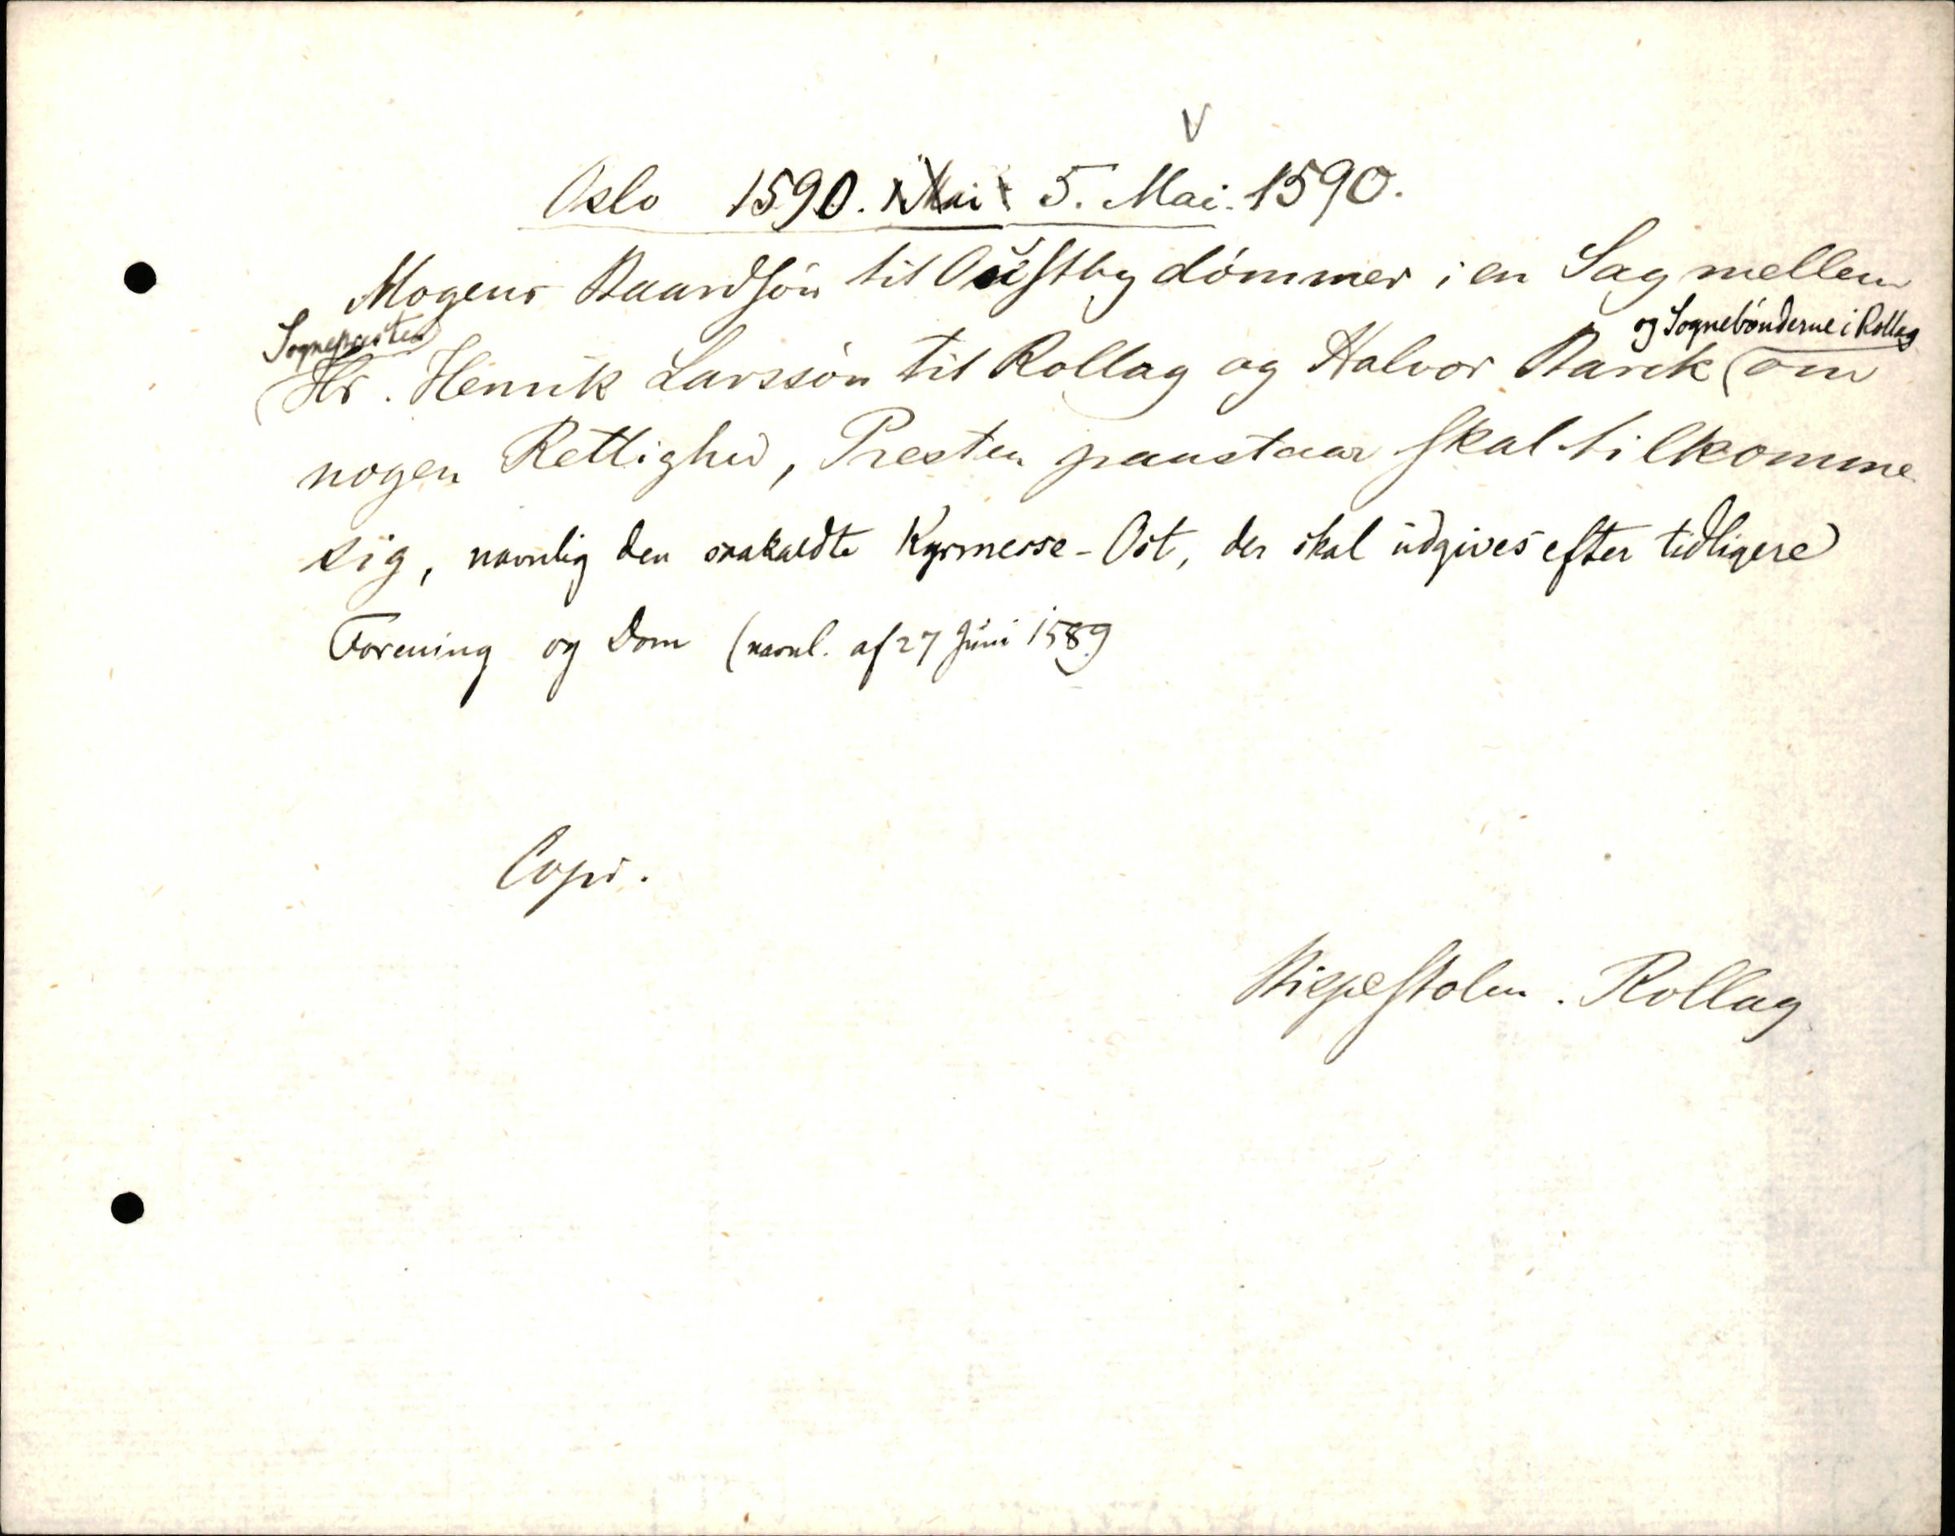 V
Oslo 1590. 5. Mai. 1590.
Mogens Baardsøn til Oustby dømmer i en Sag mellem
Sognepresten og Sognebønderne i Rollag
Hr. Henrik Larssøn til Rollag og Halvor Barck (om
nogen Rettighed, Presten paastaar skal tilkomme
sig, navnlig den saakaldte Kyrmesse-Ost, der skal udgives efter tidligere
Forening og Dom (navnl. af 27 Juni 1589
Copi.
Bispestolen. Rollag